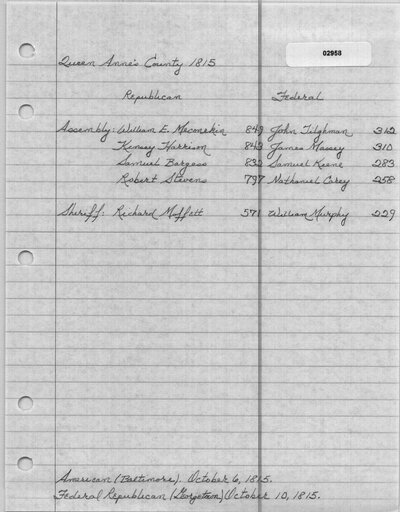 02958
Queen Anne's County 1815
Republican Federal
Assembly: William E. Meconekin 849 John Tilghman 312
Kensey Harrison 843 James Massey 310
Samuel Burgess 832 Samuel Keene 283
Robert Stevens 797 Nathaniel Carey 258
Sheriff: Richard Moffett 571 William Murphy 229
American (Baltimore). October 6, 1815.
Federal Republican (Georgetown) October 10, 1815.